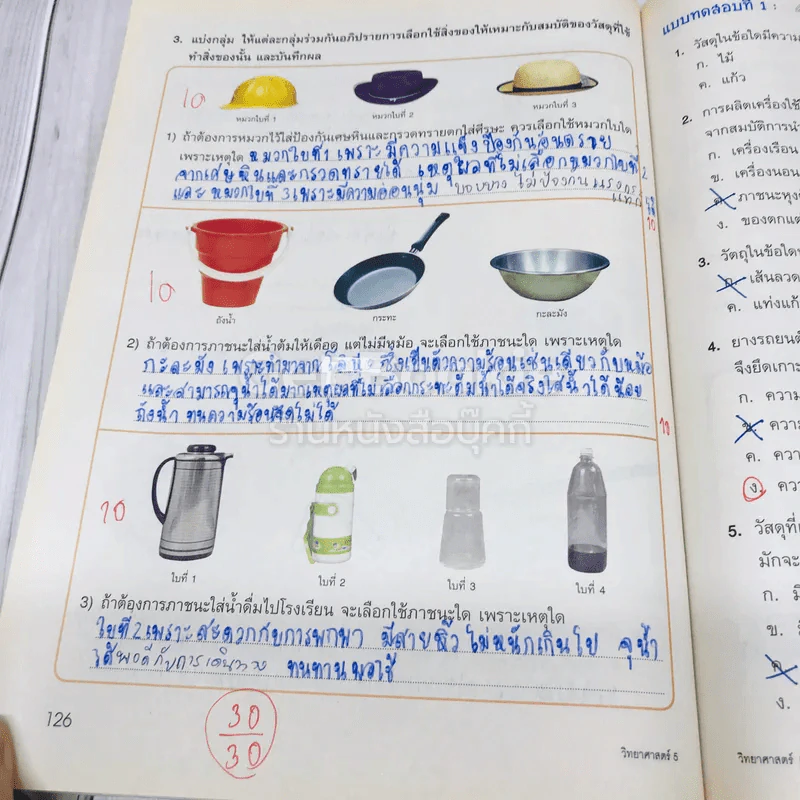 3. แบ่งกลุ่ม ให้แต่ละกลุ่มร่วมกันอภิปรายการเลือกใช้สิ่งของให้เหมาะกับสมบัติของวัสดุที่ใช้
ทำสิ่งของนั้น และบันทึกผล
10
หมวกใบที่ 1
หมวกใบที่ 2
หมวกใบที่ 3
1) ถ้าต้องการหมวกไว้ใส่ป้องกันเศษหินและกรวดทรายตกใส่ศีรษะ ควรเลือกใช้หมวกใบใด
เพราะเหตุใด หมวกใบที่ 1 เพราะ มีความแข็ง ป้องกันอันตราย
จากเศษหินและกรวดทรายได้ เหตุผลที่ไม่เลือกหมวกใบที่ 2
และ หมวกใบที่ 3 เพราะมีความอ่อนนุ่ม บอบบาง ไม่ป้องกันแรงกระแทก
10
10
ถังน้ำ
กระทะ
กะละมัง
2) ถ้าต้องการภาชนะใส่น้ำต้มให้เดือด แต่ไม่มีหม้อ จะเลือกใช้ภาชนะใด เพราะเหตุใด
กะละมัง เพราะทำมาจากโลหะ ซึ่งเป็นตัวความร้อนเช่นเดียวกับหม้อ
และสามารถจุน้ำได้มากเหตุผลที่ไม่เลือกกระทะต้มน้ำได้จริงใส่น้ำได้น้อย
ถังน้ำ ทนความร้อนสูดไม่ได้
ร้านหนังสือบุ๊คกี้
10
10
ใบที่ 1
ใบที่ 2
ใบที่ 3
ใบที่ 4
3) ถ้าต้องการภาชนะใส่น้ำดื่มไปโรงเรียน จะเลือกใช้ภาชนะใด เพราะเหตุใด
ใบที่ 2 เพราะสะดวกกับการพกพา มีสายหิ้ว ไม่หนักเกินไป จุน้ำ
ได้พอดีกับการเดินทาง ทนทาน พอใช้
30
30
126
วิทยาศาสตร์ 5
แบบทดสอบที่ 1 :
1. วัสดุในข้อใดมีความ
ก. ไม้
ค. แก้ว
2. การผลิตเครื่องใช้
จากสมบัติการนำ
ก. เครื่องเรือน
ข. เครื่องนอน
ค. ภาชนะหุง
ง. ของตกแต่
3. วัตถุในข้อใด
ก. เส้นลวด
ค. แท่งแก้
4. ยางรถยนต์
จึงยึดเกาะ
ก. ความ
ข. ควา
ค. ควา
ง. ควา
5. วัสดุที่
มักจะ
ก.
ข.
ค.
ง.
วิทยาศาสตร์